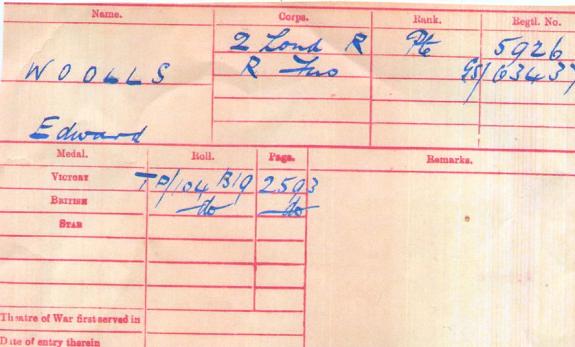 Name. Corps. Rank. Regtl. No.
2 Lond R Pte 5926
WOOLLS R Fus GS/63437
Edward
Medal. Roll. Page. Remarks.
VICTORY TP/104 B19 2593
BRITISH do do
STAR
Theatre of War first served in
Date of entry therein